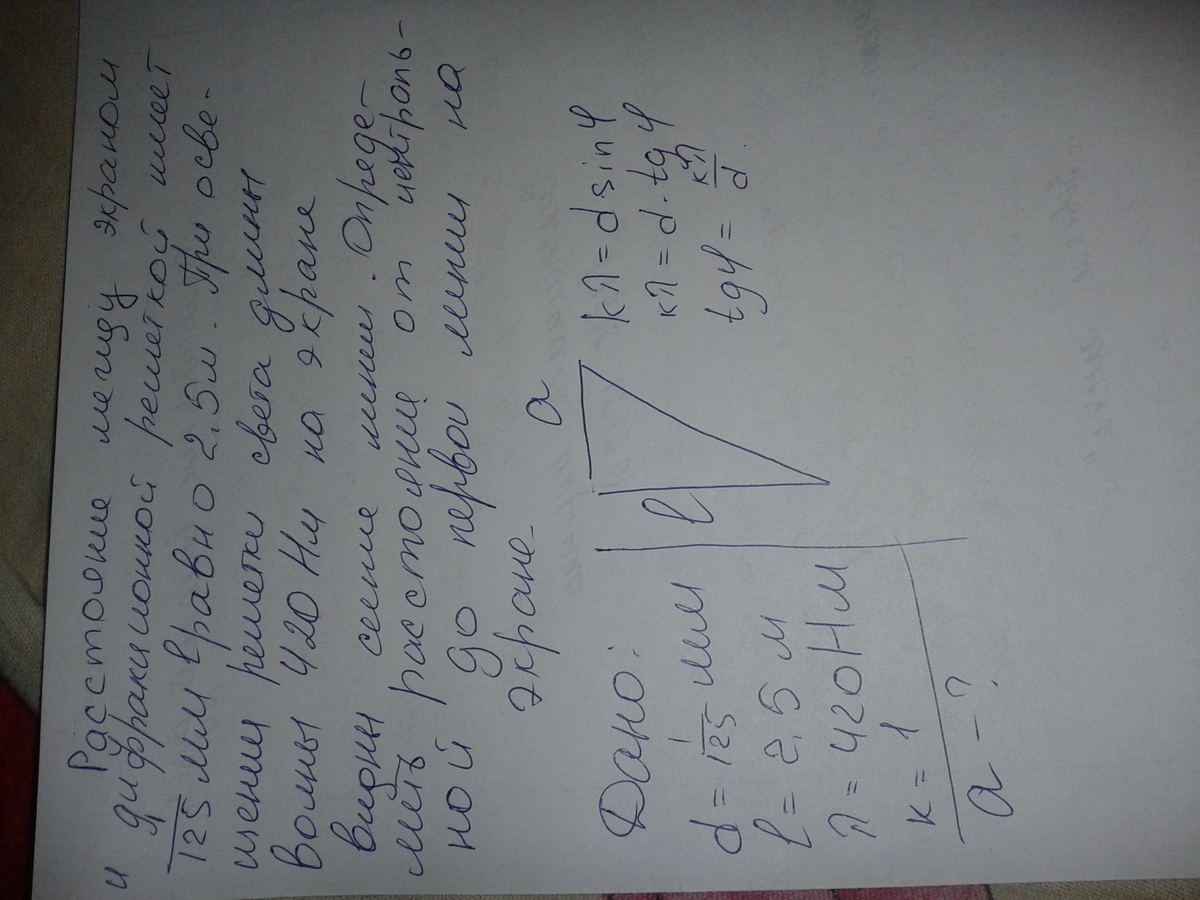 Расстояние между экраном
и дифракционной решеткой имеет
1/125 мм равно 2,5м. При осве-
щении решетки света длины
волны 420 Нм на экране
видны синие линии. Опреде-
лить расстояние от централь-
ной до первой линии на
экране
Дано:
d = 1/125 мм
l = 2.5 м
λ = 420 Нм
к = 1
a - ?
a
l
kλ = d sin φ
кλ = d · tg φ
tg φ = кλ/d